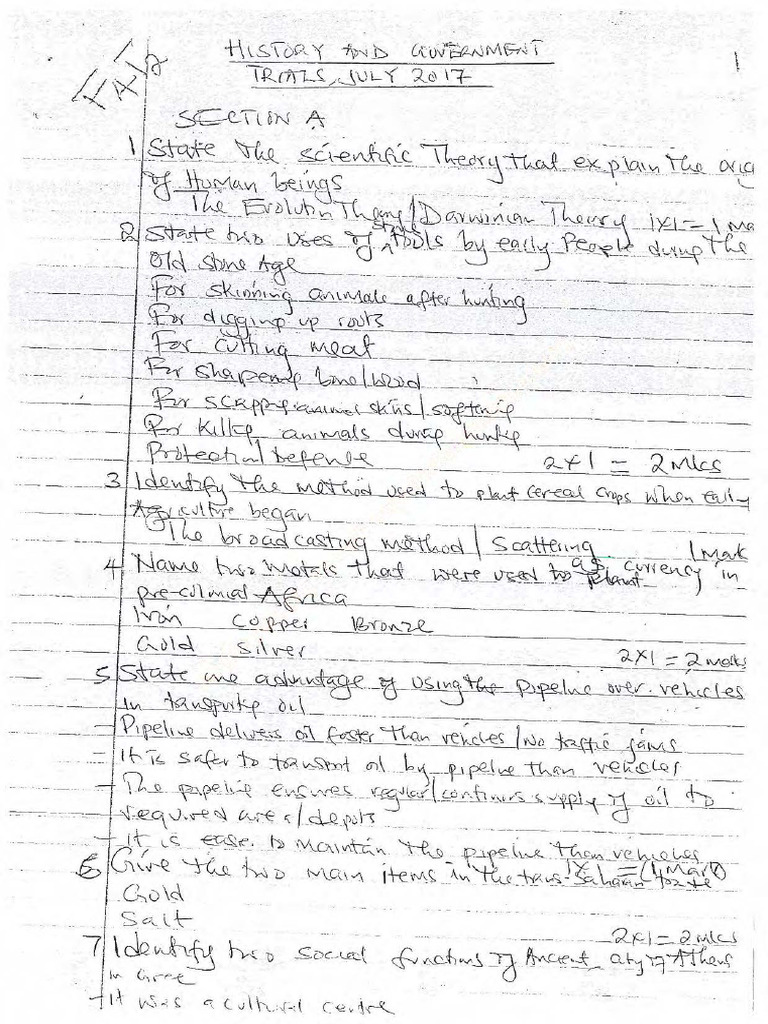 HISTORY AND GOVERNMENT
1
TRIALS, JULY 2017
SECTION A
1 State the scientific Theory that explain the orig
of Human beings
The Evolutin Theory/Darwinian Theory 1x1 = 1 Ma
2 State two uses of stone tools by early People during the
Old stone Age
For skinning animals after hunting
For digging up roots
For cutting meat
For sharpening bone/wood
For scrapping animal skins/softening
For killing animals during hunting
Protection/Defense 2x1 = 2mks
3 Identify the method used to plant cereal crops when early
Agriculture began
The broadcasting method / Scattering 1 Mark
4 Name two metals that were used to plant as currency in
pre-colonial Africa
Iron Copper Bronze
Gold Silver 2x1 = 2 marks
5 State one advantage of using the pipeline over vehicles
in transporting oil
- Pipeline delivers oil faster than vehicles / No traffic jams
- It is safer to transport oil by pipeline than vehicles
- The pipeline ensures regular/continuous supply of oil to
required area/depots
- It is ease to maintain the pipeline than vehicles
1x1 = (1 Mark)
6 Give the two main items in the trans-Saharan trade
Gold
Salt
2x1 = 2mks
7 Identify two social functions of Ancient city of Athens
in Greece
- It was a cultural centre